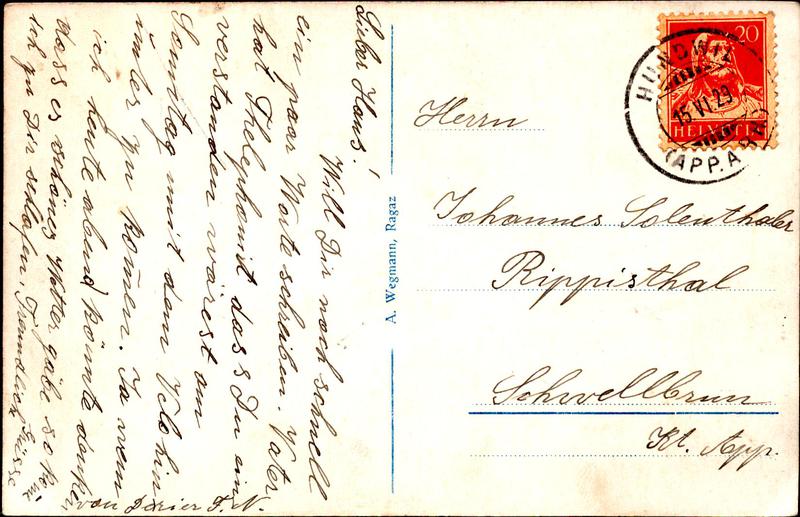 Lieber Hans!
Will Dir noch schnell
ein paar Worte schreiben. Vater
hat Thelephonirt dass Du ein
verstanden wärest am
Sonntag mit dem Velo hin
über zu komen. Ja wenn
ich heute abend könnte denken
dass es schönes Wetter gäbe so käme
ich zu Dir
Freundlich Grüsse
von
F. N.
A. Wegmann, Ragaz
20
HELVETIA
HUNDWIL
15.VI.29
(APP. A.RH.)
Herrn
Johannes Solenthaler
Rippisthal
Schwellbrun
Kt. App.